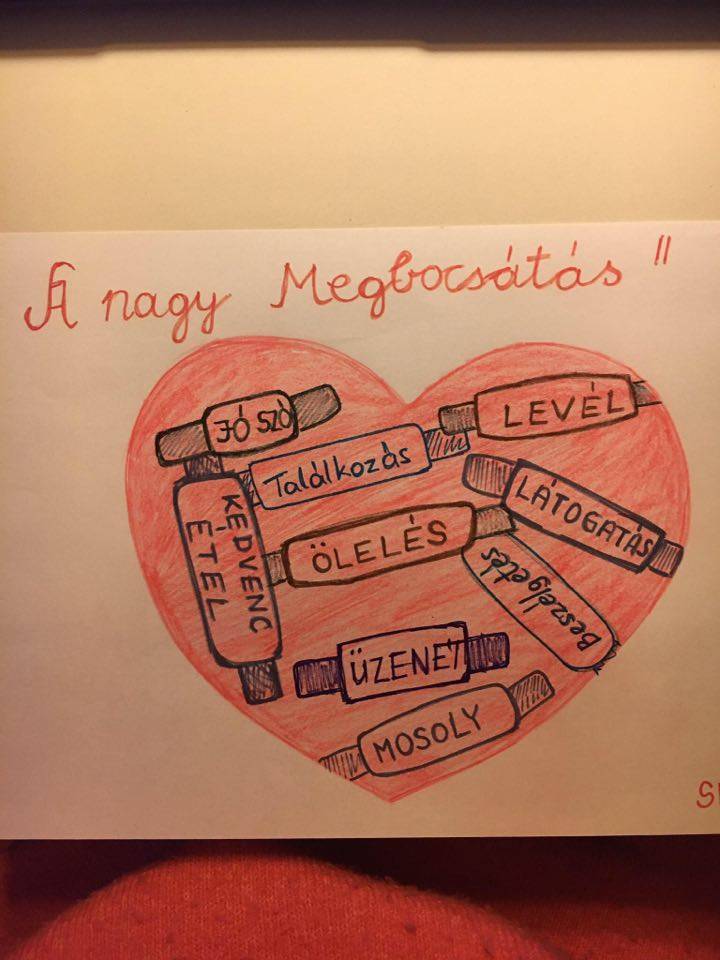 A nagy Megbocsátás"
JÓ SZÓ
LEVÉL
Találkozás
LÁTOGATÁS
KEDVENC
ÉTEL
ÖLELÉS
beszélgetés
ÜZENET
MOSOLY